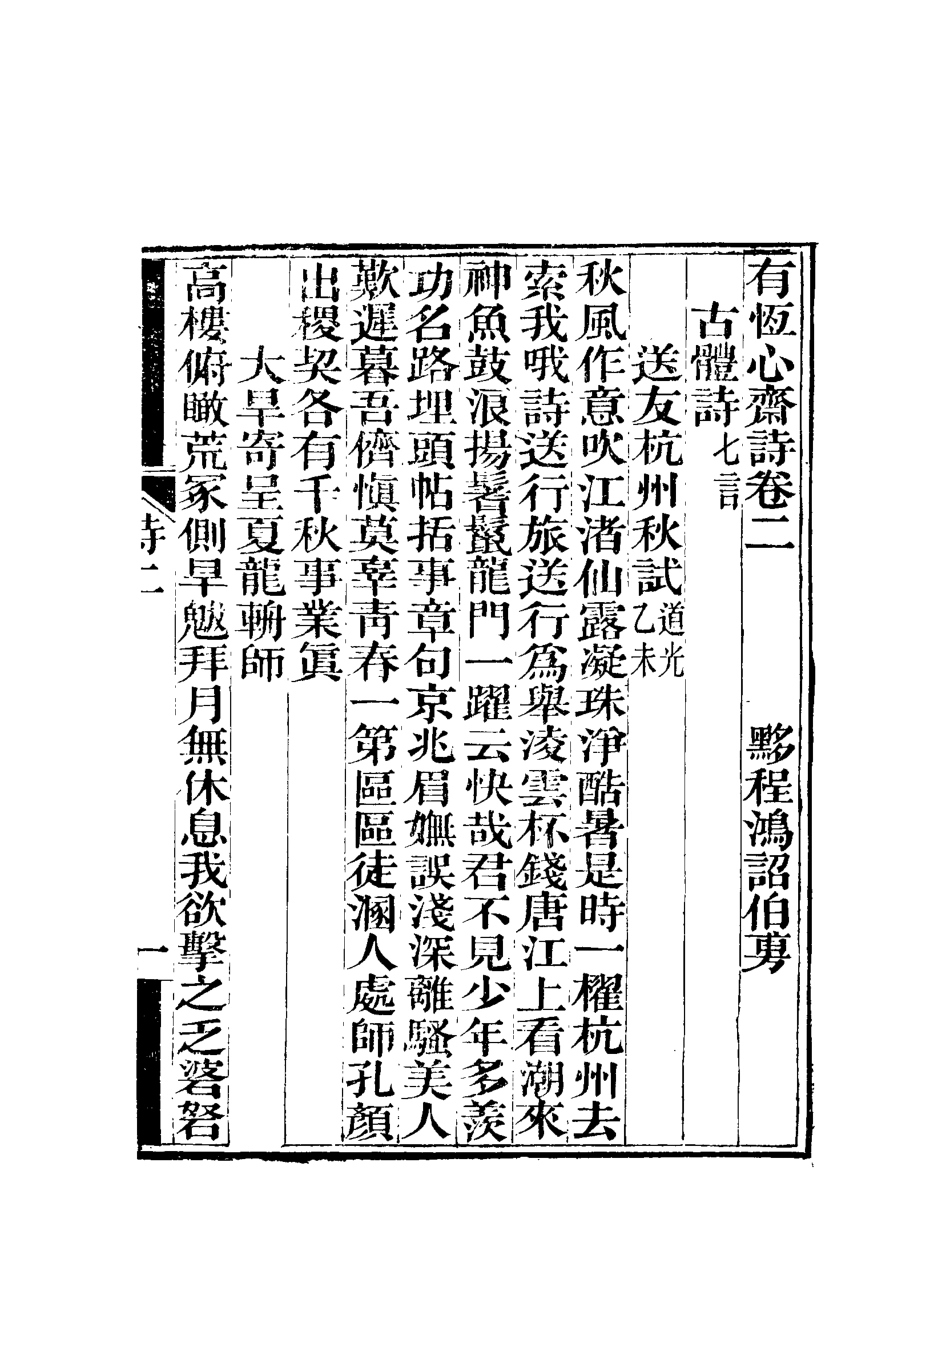 有恆心齋詩卷二　　　黟程鴻詔伯旉
古體詩七言
送友杭州秋試道光乙未
秋風作意吹江渚仙露凝珠淨酷暑是時一櫂杭州去
索我哦詩送行旅送行爲舉淩雲杯錢唐江上看潮來
神魚鼓浪揚鬐鬣龍門一躍云快哉君不見少年多羨
功名路埋頭帖括事章句京兆眉嫵誤淺深離騷美人
歎遲暮吾儕愼莫辜靑春一第區區徒溷人處師孔顏
出稷契各有千秋事業眞
大旱寄呈夏龍輈師
高樓俯瞰荒冢側旱魃拜月無休息我欲擊之乏碆砮
詩二
一